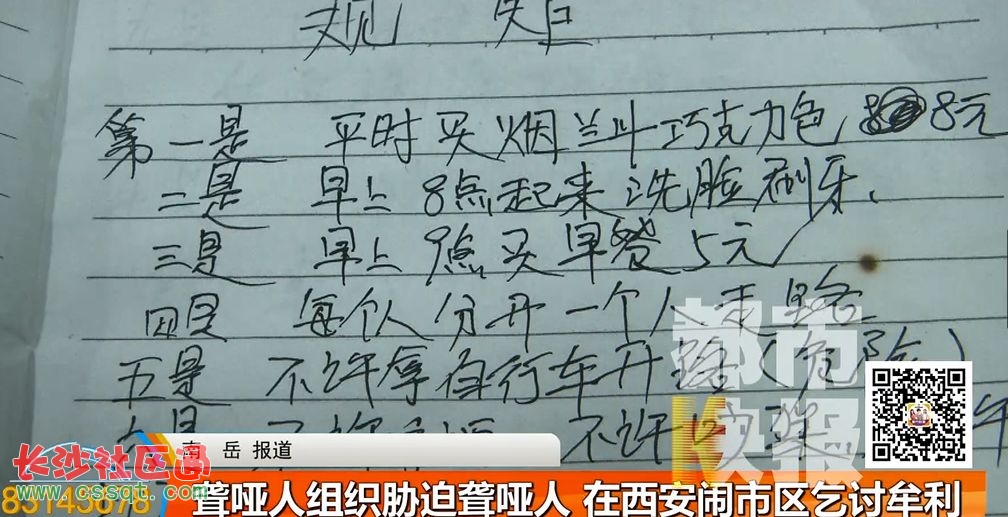 规 矩
第一是 平时买烟兰斗巧克力色 8元
二是 早上8点起来洗脸刷牙、
三是 早上9点买早餐5元
四是 每个人分开一个人走路
五是 不许 自行车开路(危险)
不许 不许
都市
快报
南 岳 报道
长沙社区通
www.cssqt.com
83145678
聋哑人组织胁迫聋哑人 在西安闹市区乞讨牟利